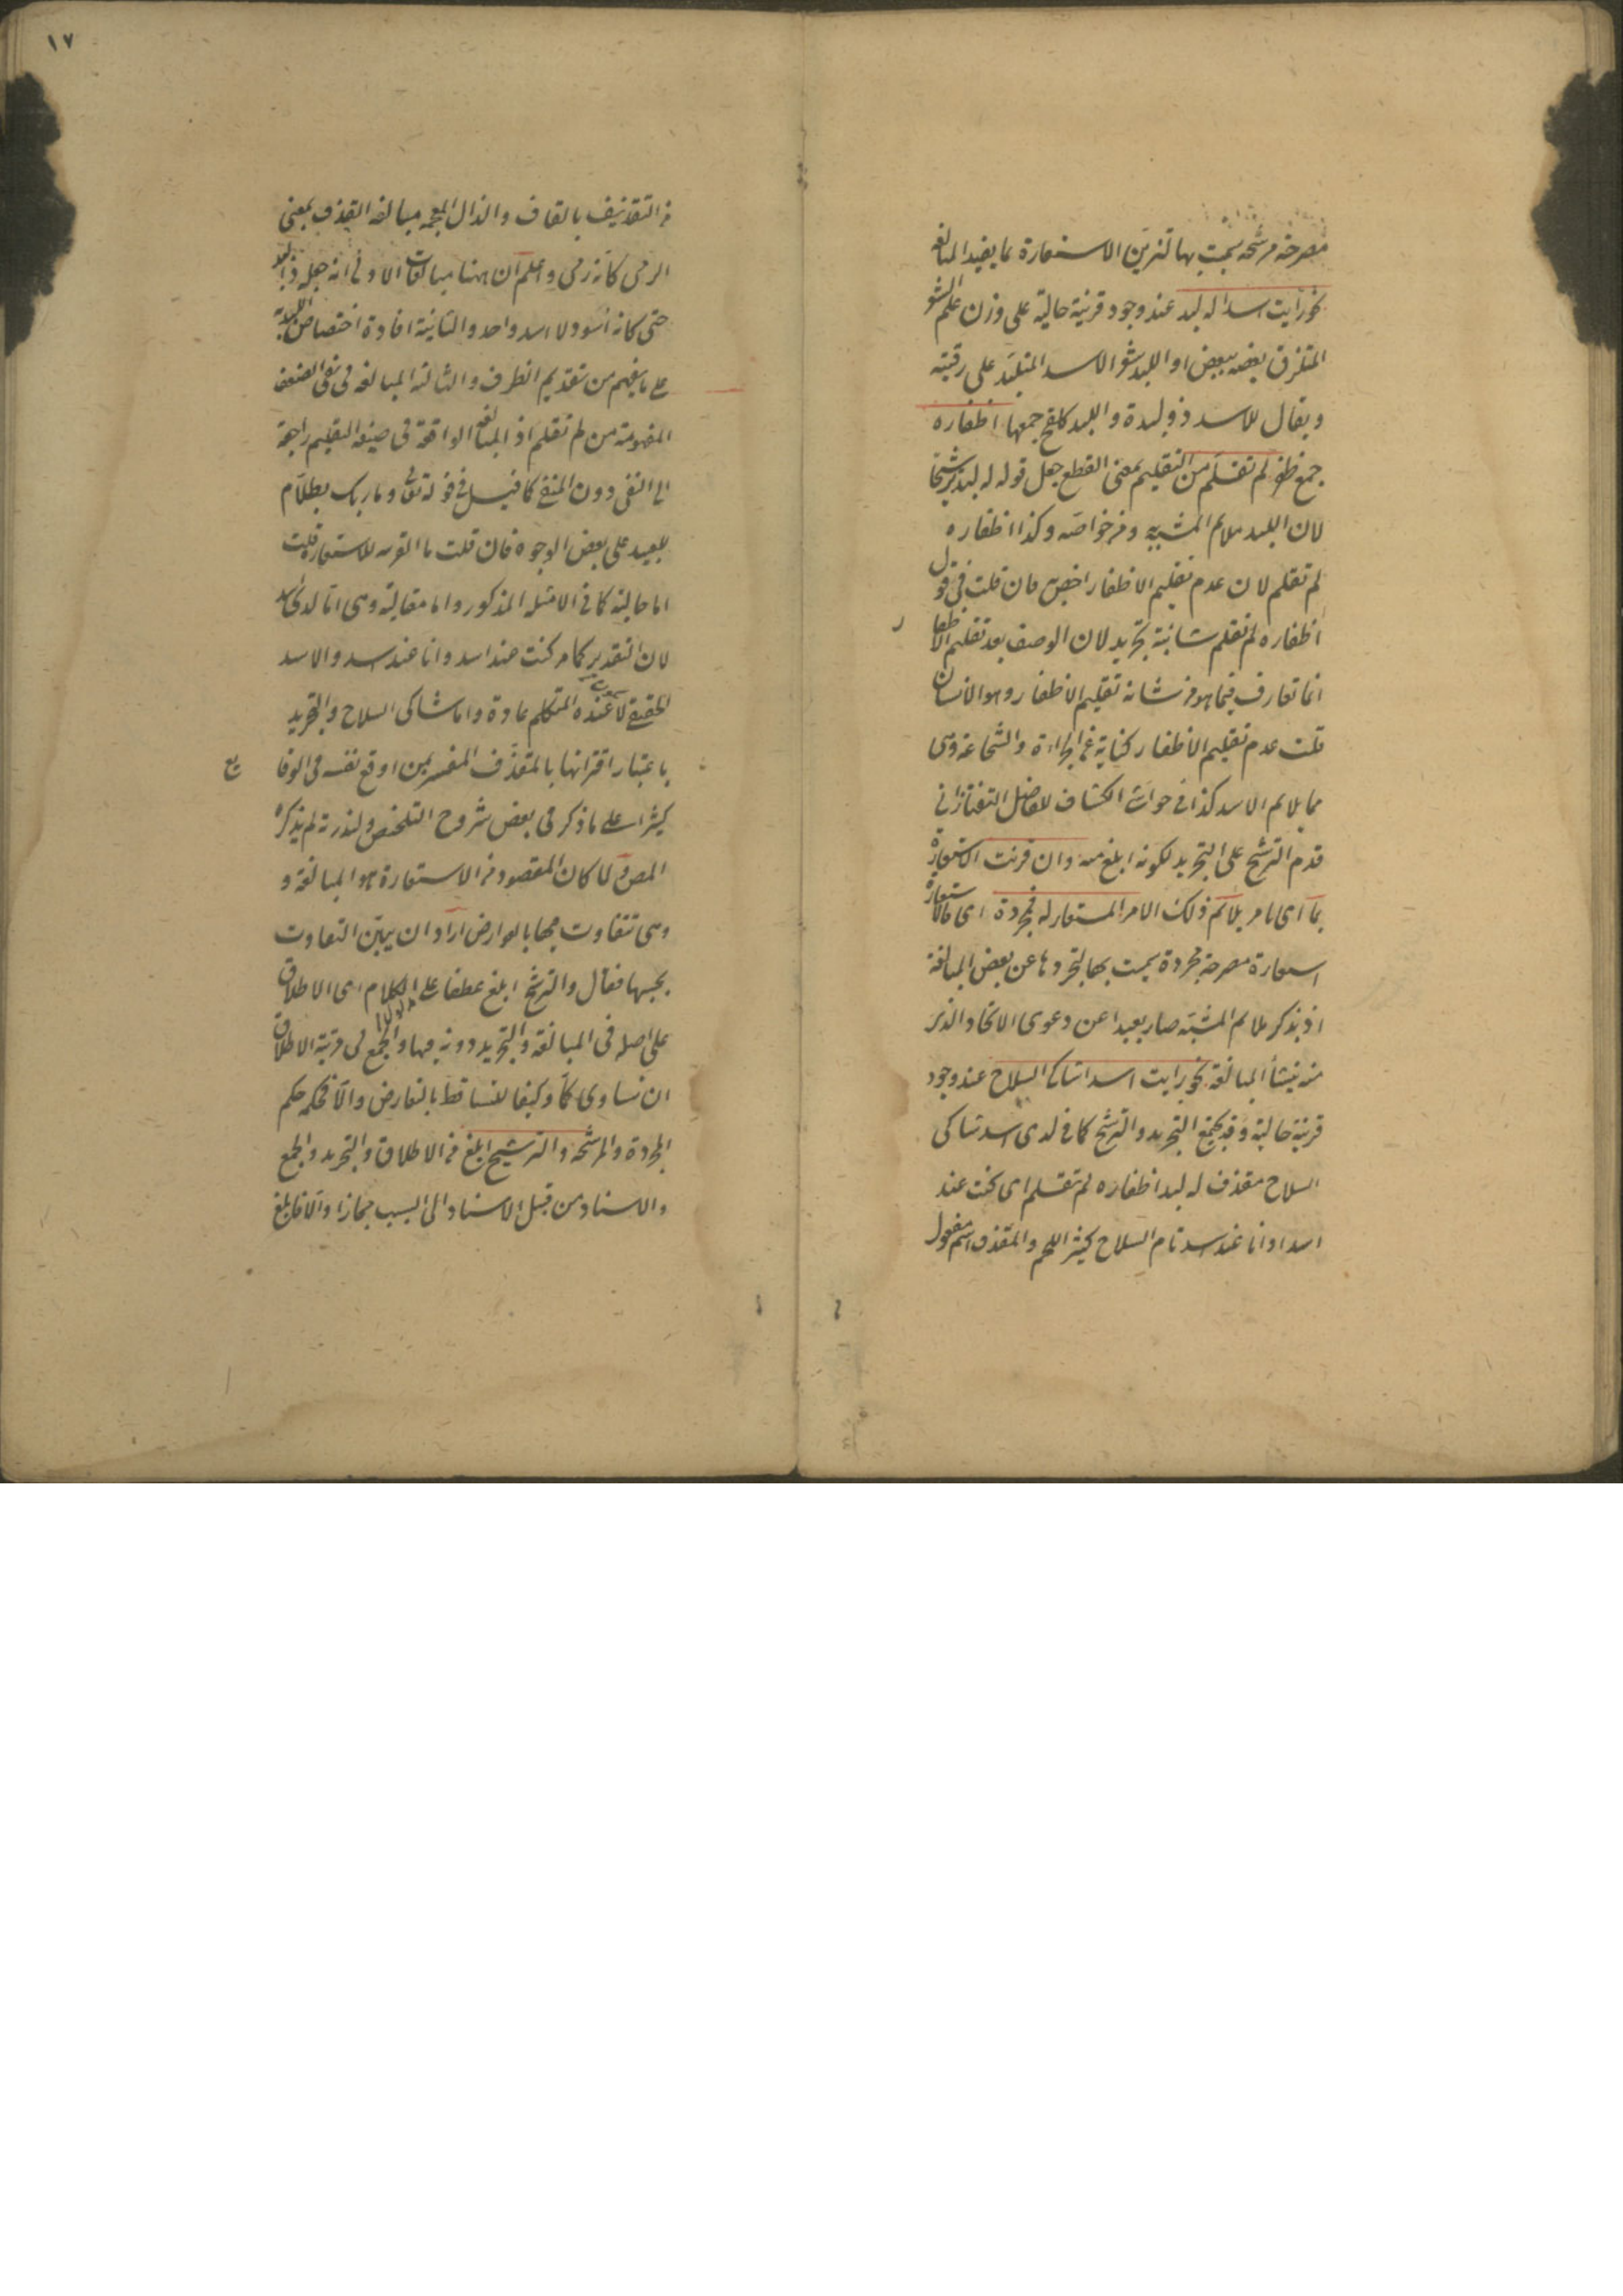 مصرحة مرشحة سميت بها لتزيين الاستعارة بما يفيد المبالغة
نحو رأيت اسدا له لبد عند وجود قرينة حالية على وزن علم الشعر
المتلزق بعضه ببعض او اللبد شعر الاسد المتلبد على رقبته
ويقال للاسد ذو لبدة واللبد كلقح جمعها اظفاره
جمع ظفر لم تقلم من التقليم بمعنى القطع جعل قوله له لبد ترشيحا
لان اللبد ملايم المشبه به ومن خواصه وكذا اظفاره
لم تقلم لان عدم تقليم الاظفار اخص فان قلت في قول
اظفاره لم تقلم شائبة تجريد لان الوصف بعد تقليم الاظفار
انما تعارف فيما هو من شانه تقليم الاظفار وهو الانسان
قلت عدم تقليم الاظفار كناية عن الجراءة والشجاعة وهي
مما يلايم الاسد كذا في حواشي الكشاف للفاضل التفتازاني
قدم الترشيح على التجريد لكونه ابلغ منه وان قرنت الاستعارة
بما اى بامر يلائم ذلك الامر المستعار له فمجردة اى فالاستعارة
استعارة مصرحة مجردة سميت بها لتجردها عن بعض المبالغة
اذ بذكر ملايم المشبه صار بعيدا عن دعوى الاتحاد الذى
منه ينشأ المبالغة نحو رايت اسدا شاكى السلاح عند وجود
قرينة حالية وقد يجتمع التجريد والترشيح كما في لدى اسد شاكى
السلاح مقذف له لبد اظفاره لم تقلم اى كنت عند
اسد او انا عند اسد تام السلاح كثير اللحم والمقذف اسم مفعول
١٧
من التقذيف بالقاف والذال المعجمة مبالغة القذف بمعنى
الرمى كانه رمى واعلم ان ههنا مبالغات الاولى انه جعله ذا لبد
حتى كانه اسود لا اسد واحد والثانية افادة اختصاص اللبدة
على ما يفهم من تقديم الظرف والثالثة المبالغة في نفى الضعف
المفهومة من لم تقلم اذ المبالغة الواقعة في صيغة التقليم راجعة
الى النفى دون المنفى كما قيل في قوله تعالى وما ربك بظلام
للعبيد على بعض الوجوه فان قلت ما القرينة للاستعارة قلت
اما حالية كما في الامثلة المذكور واما مقالية وهى اما لدى اسد
لان التقدير كما مر كنت عند اسد وانا عند اسد والاسد
الحقيقى لا يكون عنده المتكلم عادة واما شاكى السلاح والتجريد
باعتبار اقترانها بالمقذف المفسر بمن اوقع نفسه في الوقايع
كثيرا على ما ذكر في بعض شروح التلخيص ولندرته لم يذكره
المص ولما كان المقصود من الاستعارة هو المبالغة و
وهى تتفاوت بحسب العوارض اراد ان يبين التفاوت
بحسبها فقال والترشيح ابلغ عطفا على الكلام اى الاطلاق
على اصله في المبالغة والتجريد دونه فيها والجمع في مرتبة الاطلاق
ان تساوى كما وكيفا للتساقط بالتعارض والا فحكمه حكم
المجردة والمرشحة والترشيح ابلغ من الاطلاق والتجريد والجمع
والاسناد من قبيل الاسناد الى السبب مجازا والا فابلغ